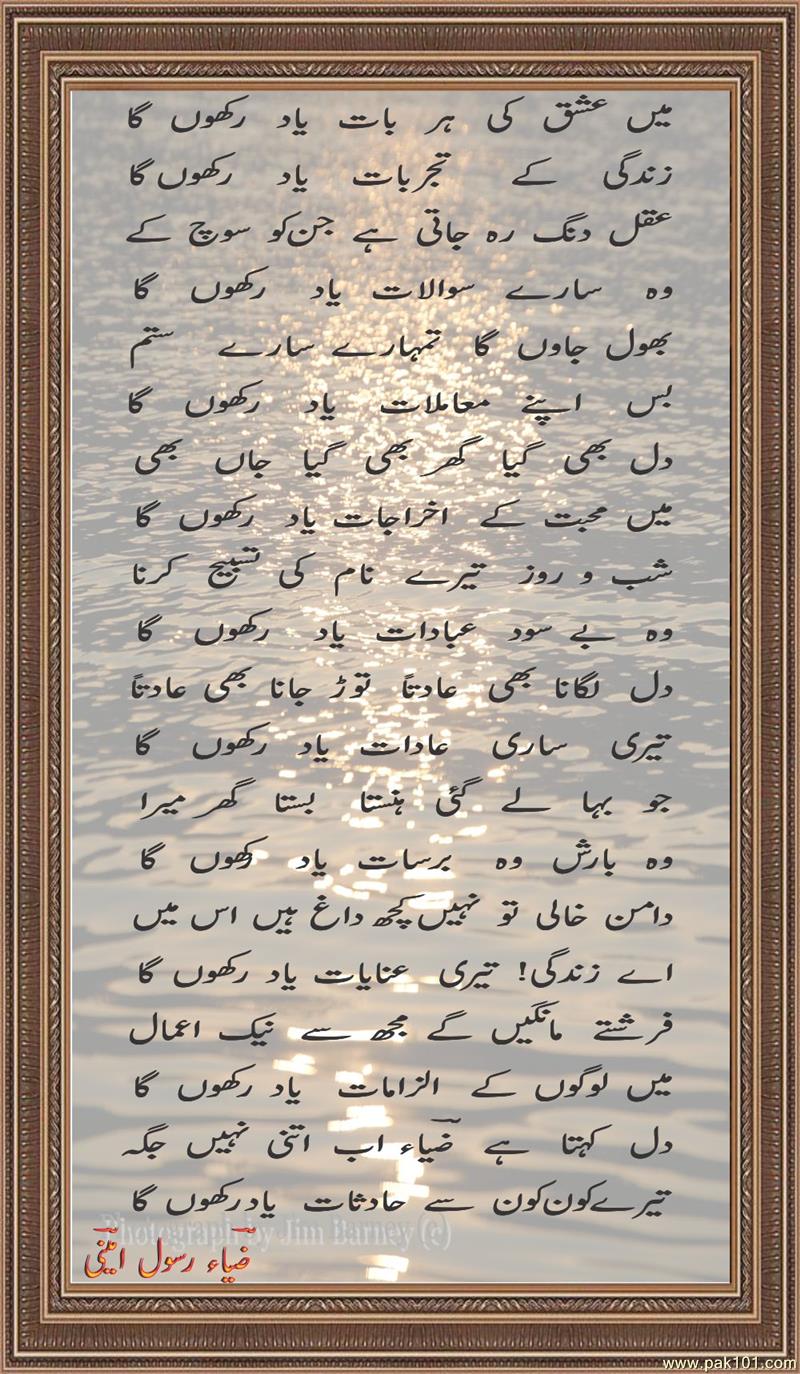 میں عشق کی ہر بات یاد رکھوں گا
زندگی کے تجربات یاد رکھوں گا
عقل دنگ رہ جاتی ہے جن کو سوچ کے
وہ سارے سوالات یاد رکھوں گا
بھول جاوں گا تمہارے سارے ستم
بس اپنے معاملات یاد رکھوں گا
دل بھی گیا گھر بھی گیا جاں بھی
میں محبت کے اخراجات یاد رکھوں گا
شب و روز تیرے نام کی تسبیح کرنا
وہ بے سود عبادات یاد رکھوں گا
دل لگانا بھی عادتاً توڑ جانا بھی عادتاً
تیری ساری عادات یاد رکھوں گا
جو بہا لے گئی ہنستا بستا گھر میرا
وہ بارش وہ برسات یاد رکھوں گا
دامن خالی تو نہیں کچھ داغ ہیں اس میں
اے زندگی! تیری عنایات یاد رکھوں گا
فرشتے مانگیں گے مجھ سے نیک اعمال
میں لوگوں کے الزامات یاد رکھوں گا
دل کہتا ہے ضیاء اب اتنی نہیں جگہ
تیرے کون کون سے حادثات یاد رکھوں گا
Photograph by Jim Barney (c)
ضیاء رسول امینی
www.pak101.com